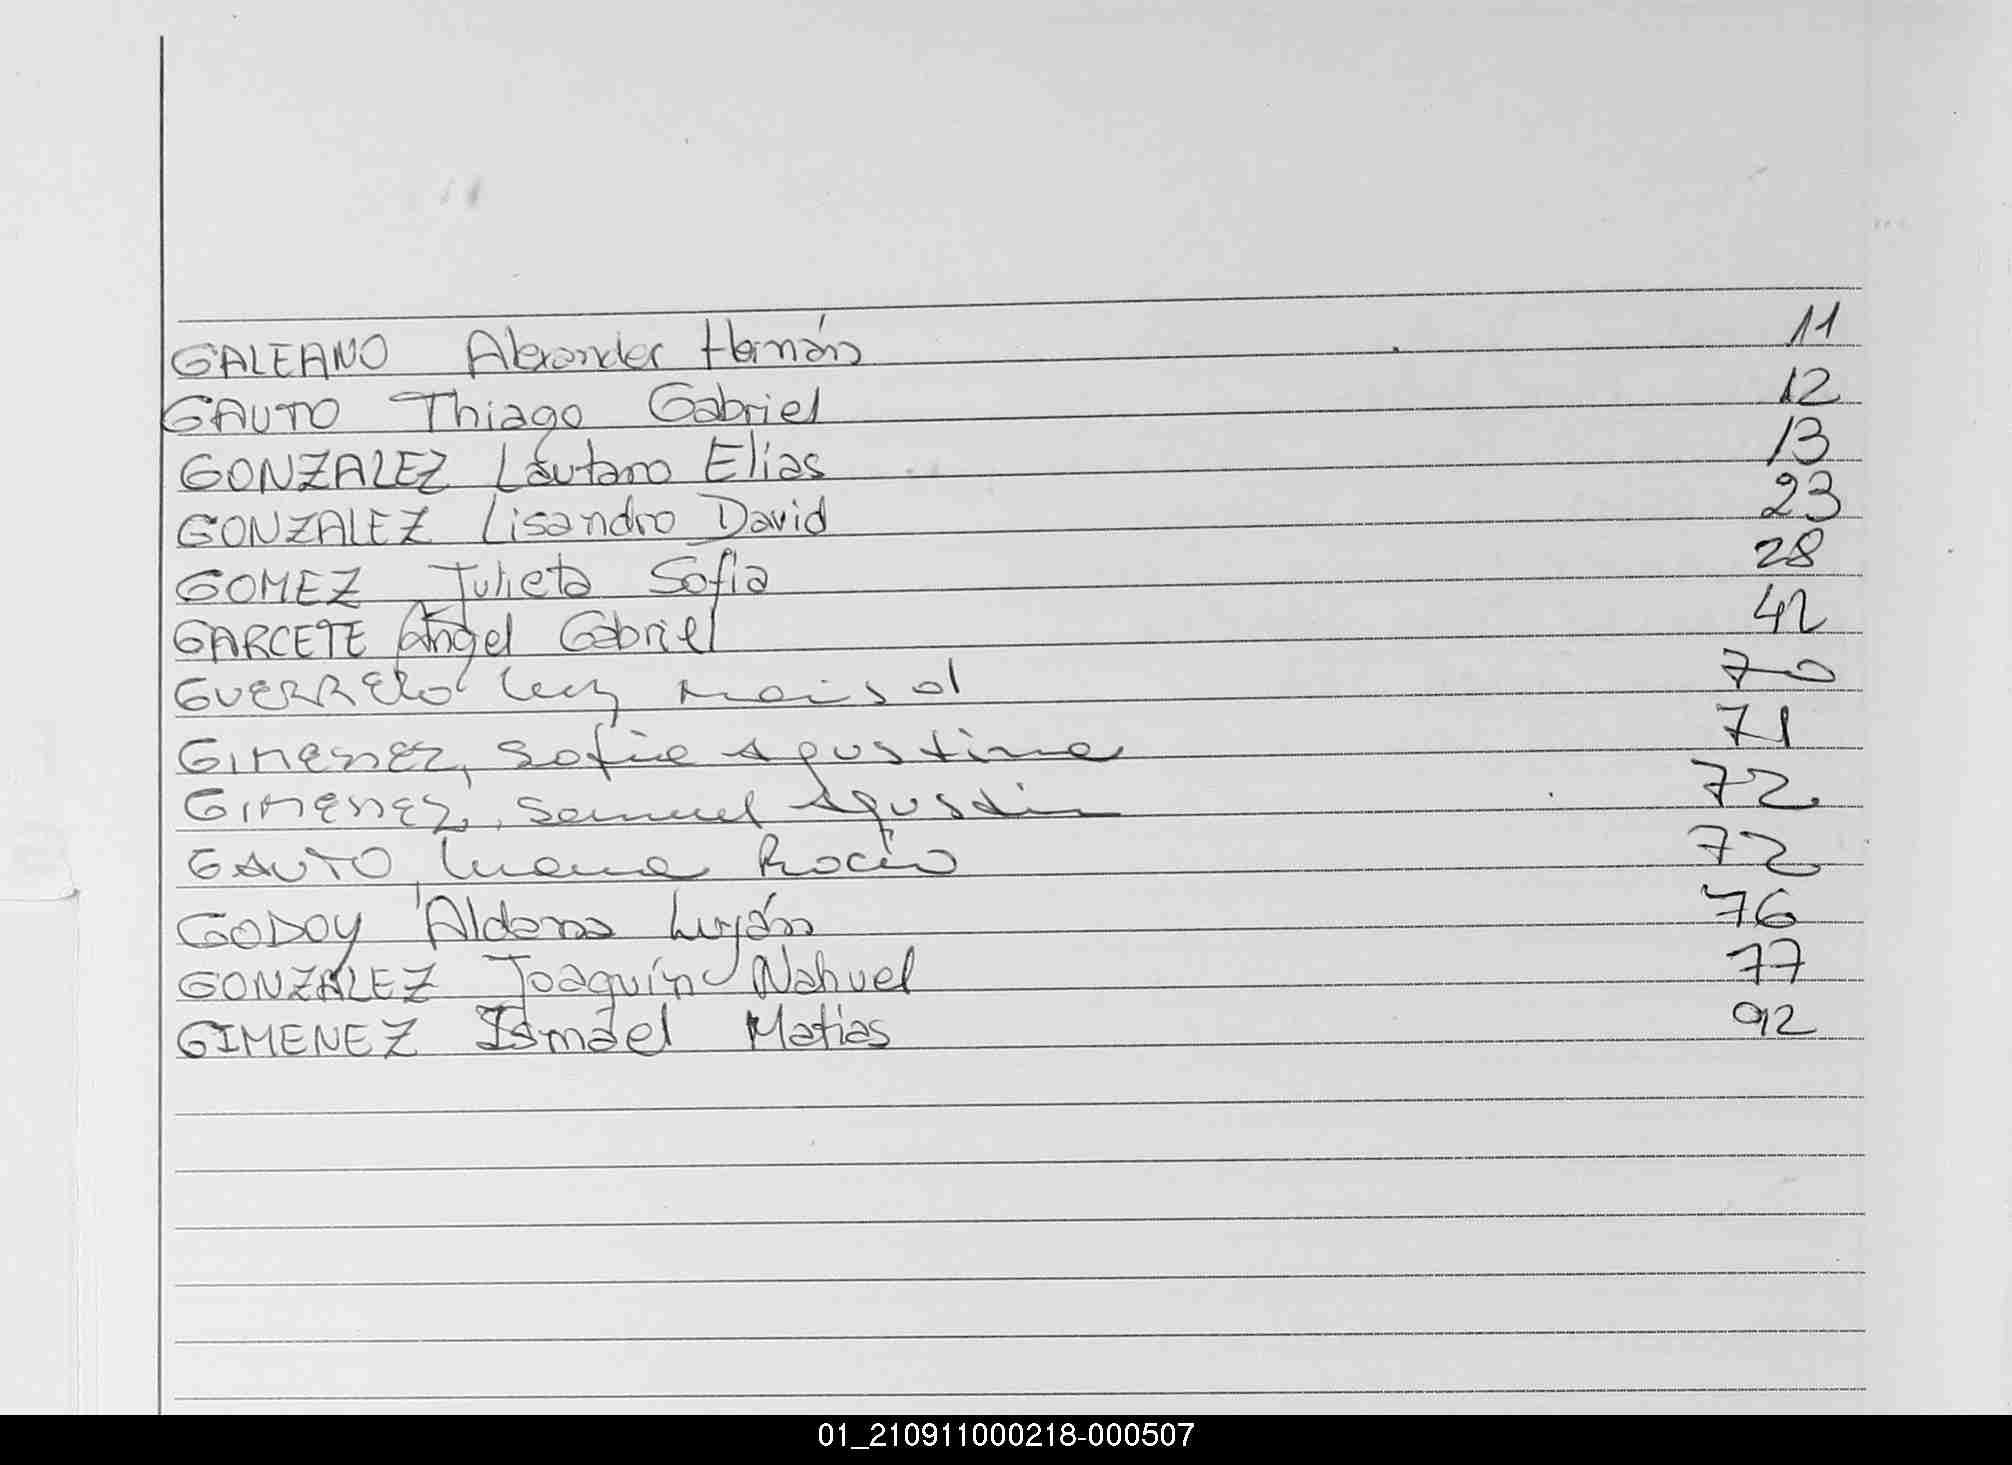 GALEANO Alexander Hernán 11
GAUTO Thiago Gabriel 12
GONZALEZ Lautaro Elias 13
GONZALEZ Lisandro David 23
GOMEZ Julieta Sofia 28
GARCETE Angel Gabriel 42
GUERRERO Luz Maisol 70
GIMENEZ, Sofia Agustina 71
GIMENEZ, Samuel Agustin 72
GAUTO, Luana Rocio 72
GODOY Aldana Luján 76
GONZALEZ Joaquín Nahuel 77
GIMENEZ Ismael Matias 92
01_210911000218-000507